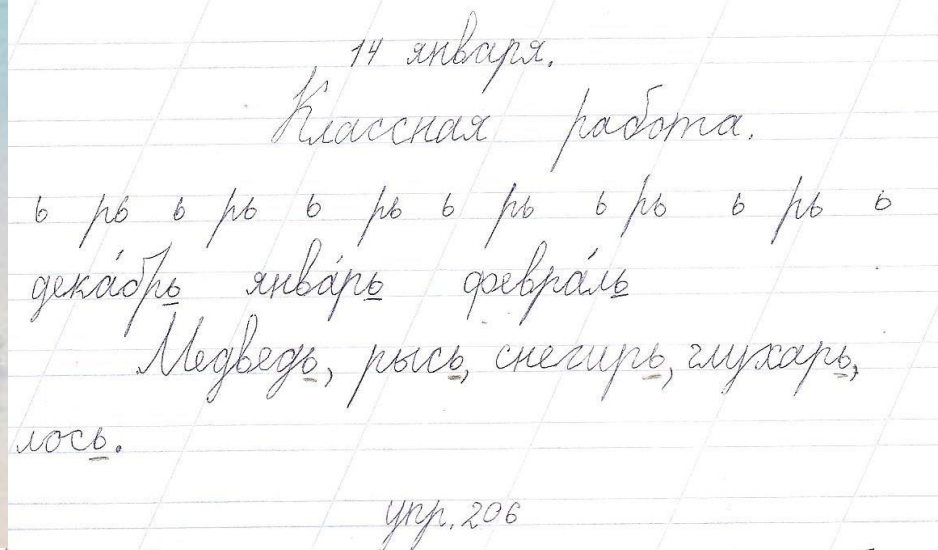 14 января.
Классная работа.
ь рь ь рь ь рь ь рь ь рь ь рь ь
дека́брь янва́рь февра́ль
Медведь, рысь, снегирь, глухарь,
лось.
упр. 206